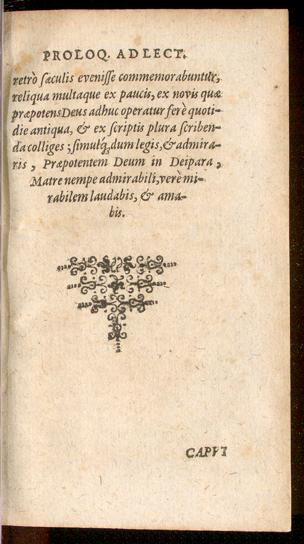 PROLOQ. AD LECT.
retrò ſæculis eveniſſe commemorabuntur,
reliqua multaque ex paucis, ex novis quæ
præpotens Deus adhuc operatur ferè quoti-
die antiqua, & ex ſcriptis plura ſcriben-
da colliges; ſimulq́, dum legis, & admira-
ris, Præpotentem Deum in Deipara,
Matre nempe admirabili, verè mi-
rabilem laudabis, & ama-
bis.
CAPVT